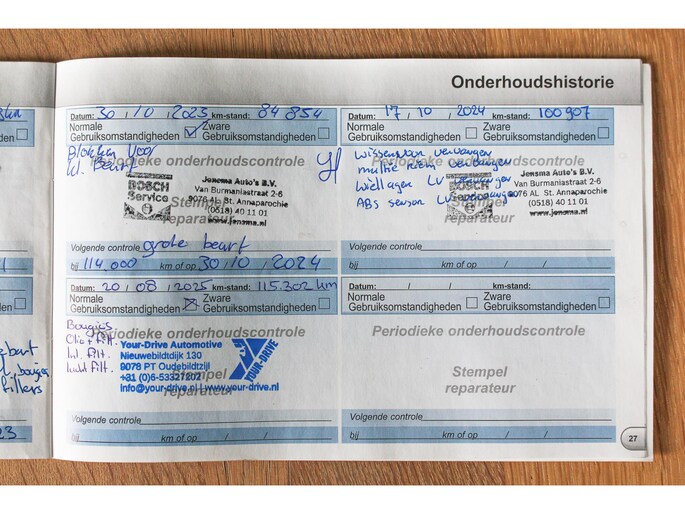 Onderhoudshistorie
Datum: 30 / 10 / 2023 km-stand: 84 854
Normale Gebruiksomstandigheden Zware Gebruiksomstandigheden
Blokken Voor
kl. Beurt
Periodieke onderhoudscontrole
BOSCH Service
Jensma Auto's B.V.
Van Burmaniastraat 2-6
9076 AL St. Annaparochie
(0518) 40 11 01
www.jensma.nl
Stempel
reparateur
Volgende controle grote beurt
bij 114.000 km of op 30 / 10 / 2024
Datum: 17 / 10 / 2024 km-stand: 100 907
Normale Gebruiksomstandigheden Zware Gebruiksomstandigheden
wissers voor vervangen
multie riem vervangen
Periodieke onderhoudscontrole
Wiellagen LV vervangen
ABS sensor LV vervangen
Jensma Auto's B.V.
Van Burmaniastraat 2-6
9076 AL St. Annaparochie
(0518) 40 11 01
www.jensma.nl
Stempel
reparateur
Volgende controle
bij / km of op / /
Datum: 20 / 08 / 2025 km-stand: 115.302 km
Normale Gebruiksomstandigheden Zware Gebruiksomstandigheden
Bougies
Olie + filt.
Int. filt.
Lucht filt.
Periodieke onderhoudscontrole
Your-Drive Automotive
Nieuwebildtdijk 130
9078 PT Oudebildtzijl
+31 (0)6-53327202
info@your-drive.nl | www.your-drive.nl
YOUR-DRIVE
Stempel
reparateur
Volgende controle
bij km of op / /
Datum: / / km-stand:
Normale Gebruiksomstandigheden Zware Gebruiksomstandigheden
Periodieke onderhoudscontrole
Stempel
reparateur
Volgende controle
bij km of op / /
27